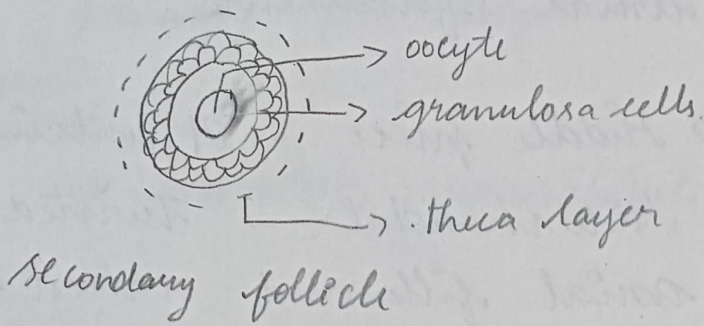 oocyte
granulosa cells.
theca layer
secondary follicle